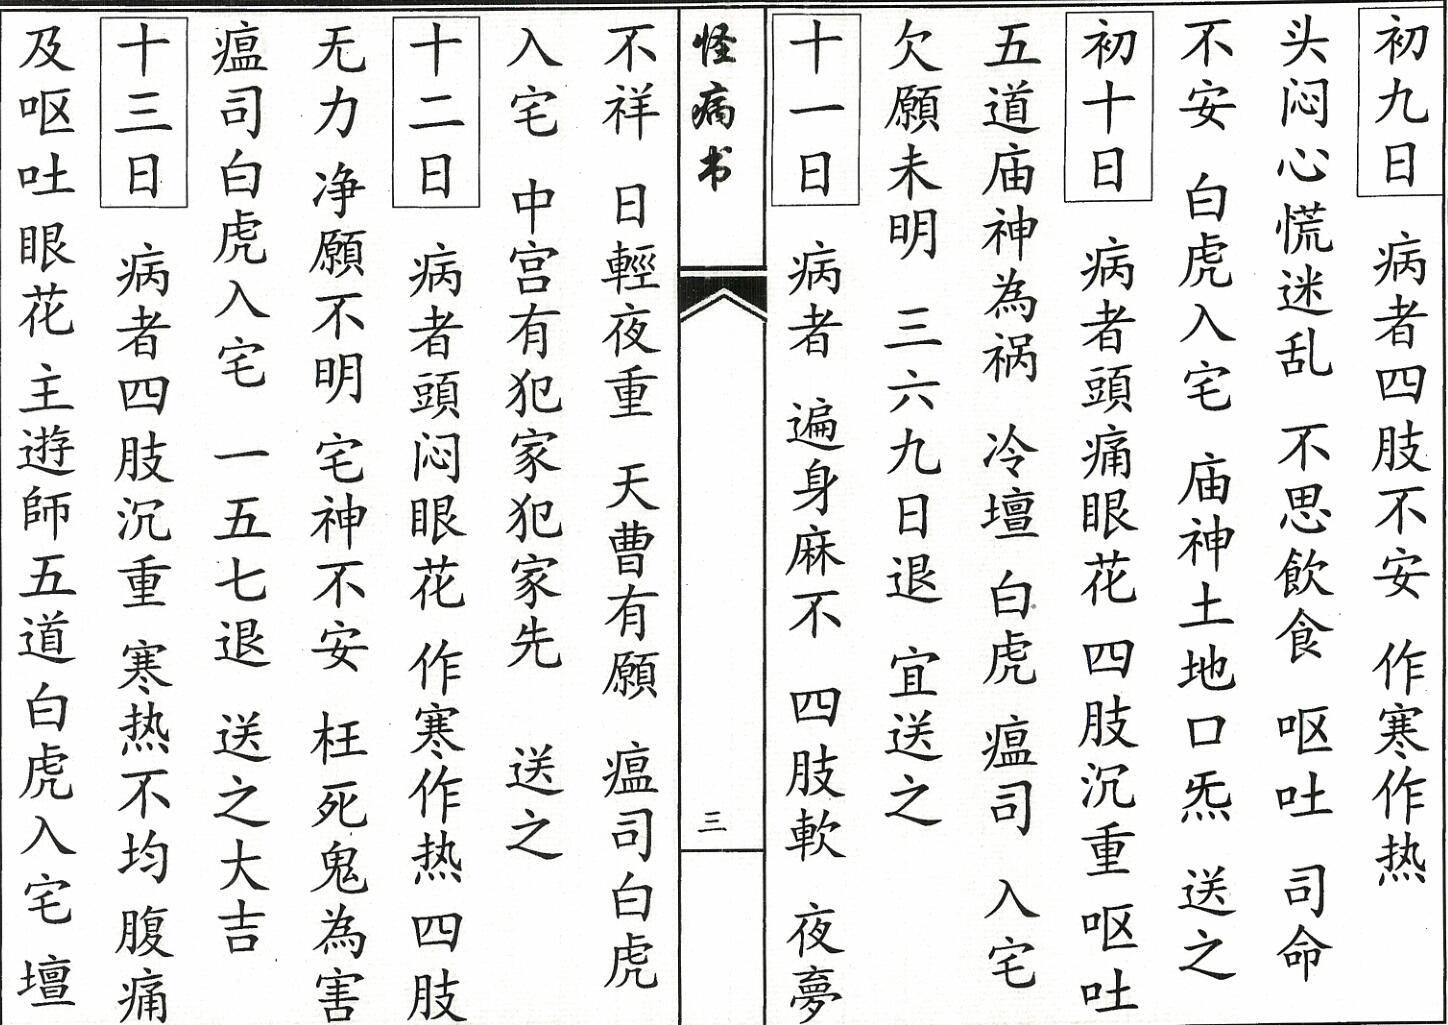 初九日 病者四肢不安 作寒作热
头闷心慌迷乱 不思飲食 呕吐 司命
不安 白虎入宅 庙神土地口炁 送之
初十日 病者頭痛眼花 四肢沉重 呕吐
五道庙神為祸 冷壇 白虎 瘟司 入宅
欠願未明 三六九日退 宜送之
十一日 病者 遍身麻不 四肢軟 夜夢
怪病书
三
不祥 日輕夜重 天曹有願 瘟司白虎
入宅 中宫有犯家犯家先 送之
十二日 病者頭闷眼花 作寒作热 四肢
无力 净願不明 宅神不安 枉死鬼為害
瘟司白虎入宅 一五七退 送之大吉
十三日 病者四肢沉重 寒热不均 腹痛
及呕吐眼花 主遊師五道 白虎入宅 壇